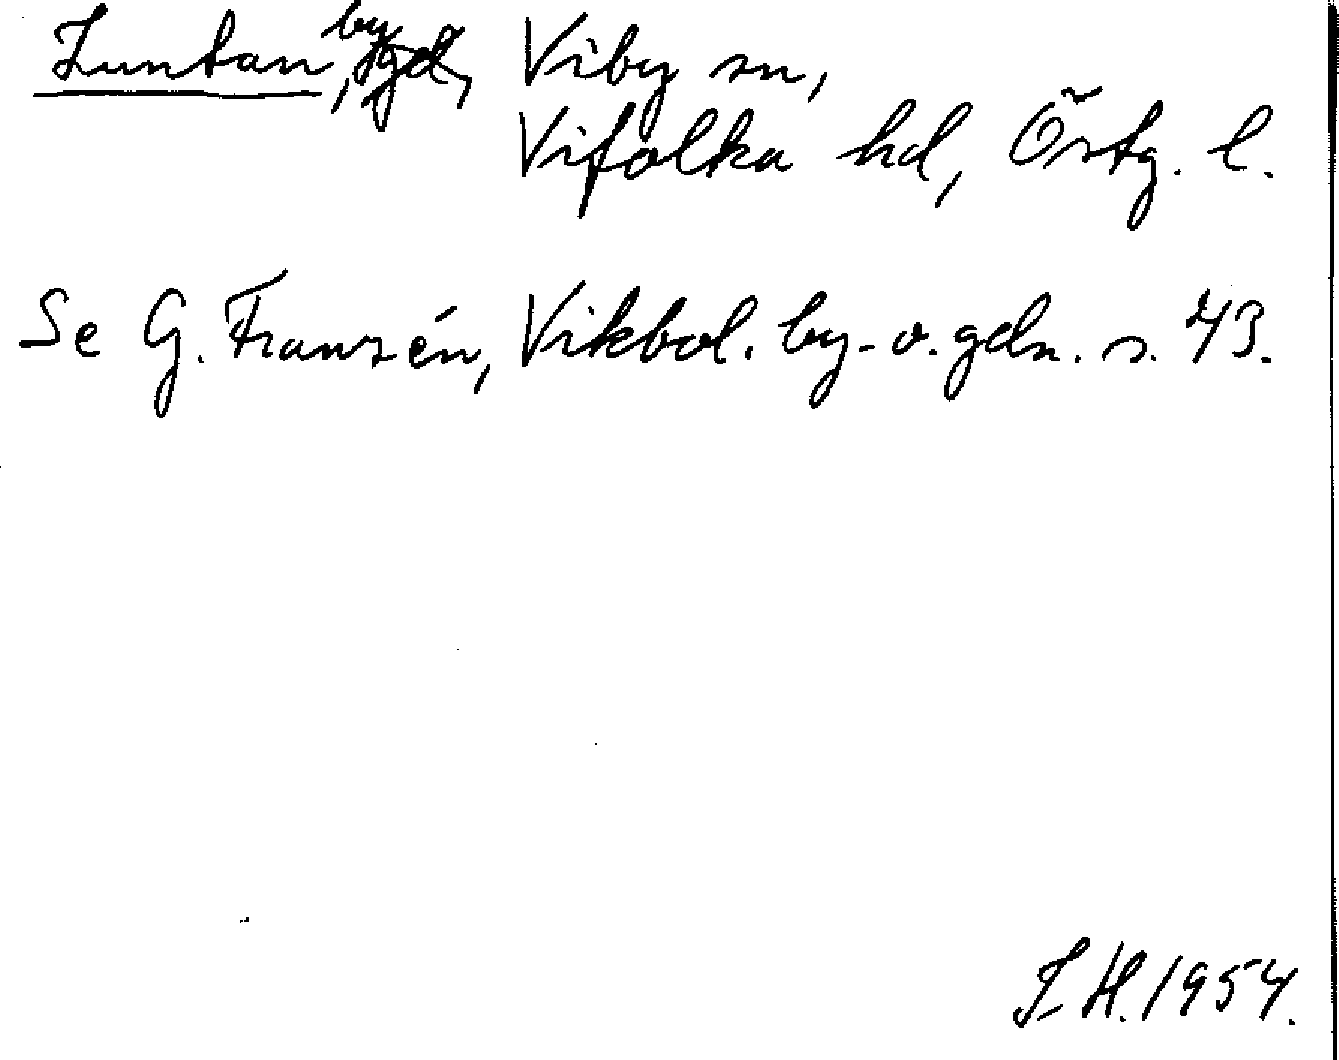 Luntan, by, Viby sn,
Vifolka hd, Östg. l.
Se G. Franzén, Vikbol. by- o. gdn. s. 43.
I. H. 1954.